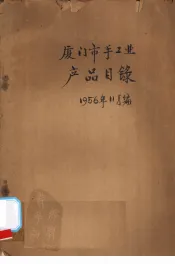 厦门市手工业
产品目録
1956年11月编